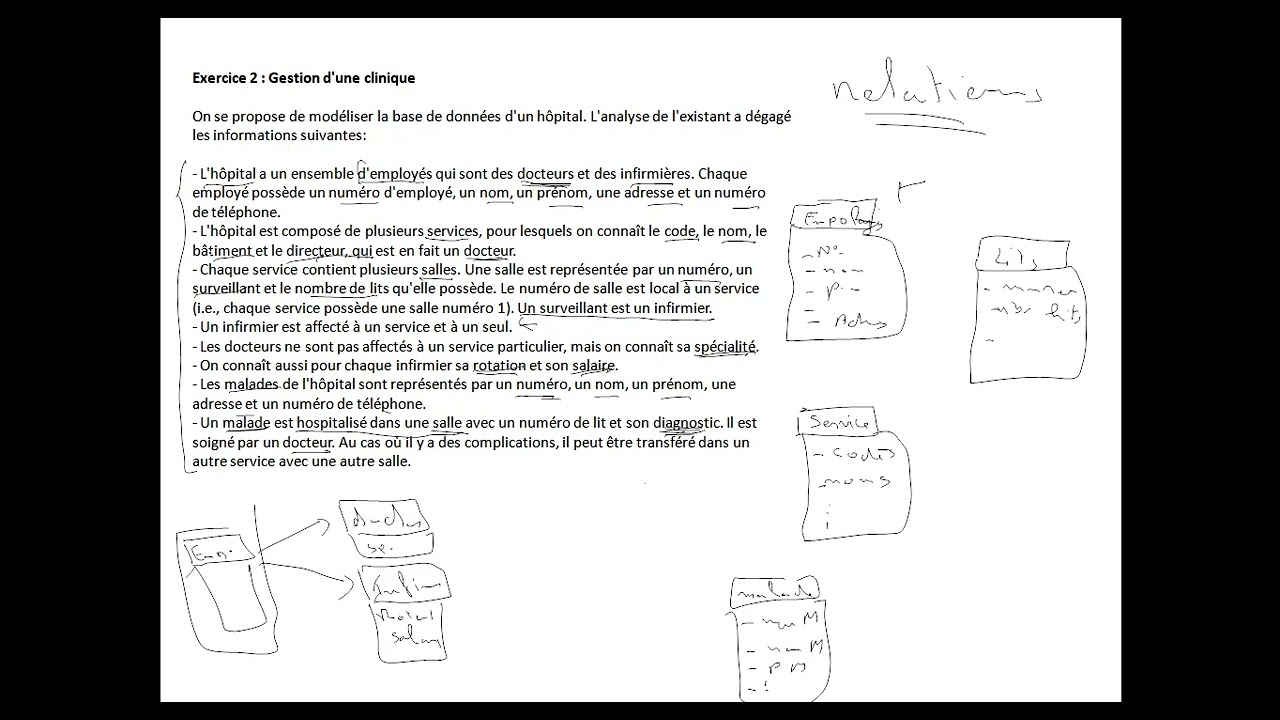 Exercice 2 : Gestion d'une clinique
relations
On se propose de modéliser la base de données d'un hôpital. L'analyse de l'existant a dégagé
les informations suivantes:
- L'hôpital a un ensemble d'employés qui sont des docteurs et des infirmières. Chaque
employé possède un numéro d'employé, un nom, un prénom, une adresse et un numéro
de téléphone.
- L'hôpital est composé de plusieurs services, pour lesquels on connaît le code, le nom, le
bâtiment et le directeur, qui est en fait un docteur.
- Chaque service contient plusieurs salles. Une salle est représentée par un numéro, un
surveillant et le nombre de lits qu'elle possède. Le numéro de salle est local à un service
(i.e., chaque service possède une salle numéro 1). Un surveillant est un infirmier.
- Un infirmier est affecté à un service et à un seul.
- Les docteurs ne sont pas affectés à un service particulier, mais on connaît sa spécialité.
- On connaît aussi pour chaque infirmier sa rotation et son salaire.
- Les malades de l'hôpital sont représentés par un numéro, un nom, un prénom, une
adresse et un numéro de téléphone.
- Un malade est hospitalisé dans une salle avec un numéro de lit et son diagnostic. Il est
soigné par un docteur. Au cas où il y a des complications, il peut être transféré dans un
autre service avec une autre salle.
- N°
- nom
- P -
Lits
nbr lits
Service
- codes
noms
Em.
se.
malade
- nom M